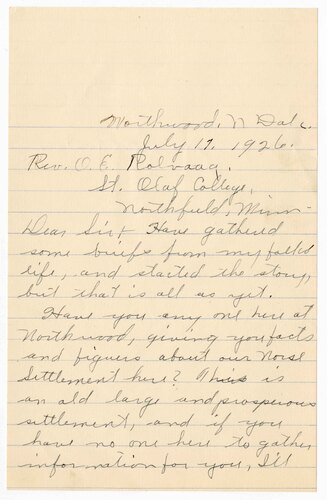 Northwood, N Dak.
July 17, 1926.
Rev. O. E. Rolvaag,
St. Olaf College,
Northfield, Minn.
Dear Sir:- Have gathered
some briefs from my
life, and started the story,
but that is all as yet.
Have you any one here at
Northwood, giving you facts
and figuers about our Norse
Settlement here? This is
an old large and prosperous
settlement, and if you
have no one here to gather
information for you, I'll